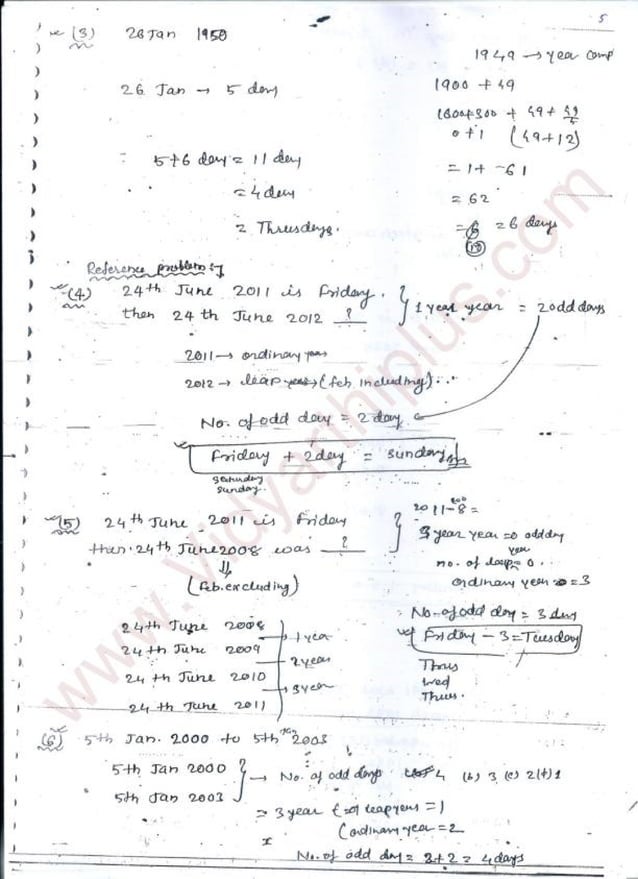 5
(3) 26 Jan 1950
1949 → year comp
1900 + 49
26 Jan → 5 day
1600+300 + 49 + 49/4
0+1 (49+12)
5+6 day = 11 day
= 1+ 61
= 4 day
= 62
= Thrusdays.
= 6 = 6 days
Reference problem :-
(4) 24th June 2011 is Friday.
then 24 th June 2012 ?
1 year year = 2 odd days
2011 → ordinary year
2012 → leap year → (feb including)...
No. of odd day = 2 day
Friday + 2 day = Sunday
Saturday
Sunday.
(5) 24th June 2011 is Friday
than 24th June 2008 was ?
(feb. excluding)
2011-8 =
3 year year = 0 odd day
no. of leap year = 0..
ordinary year = 3
No-of odd day = 3 day
Friday - 3 = Tuesday
Thus
Wed
Thus.
24th June 2008
→ 1 year
24th June 2009
→ 2 year
24 th June 2010
→ 3 year
24 th June 2011
(6) 5th Jan. 2000 to 5th Jan 2003
5th Jan 2000
5th Jan 2003
→ No. of odd days 4 (b) 3 (c) 2 (d) 1
= 3 year
leap years = 1
(ordinary year = 2
No. of odd day = 2+2 = 4 days
www.Vidyarthiplus.com